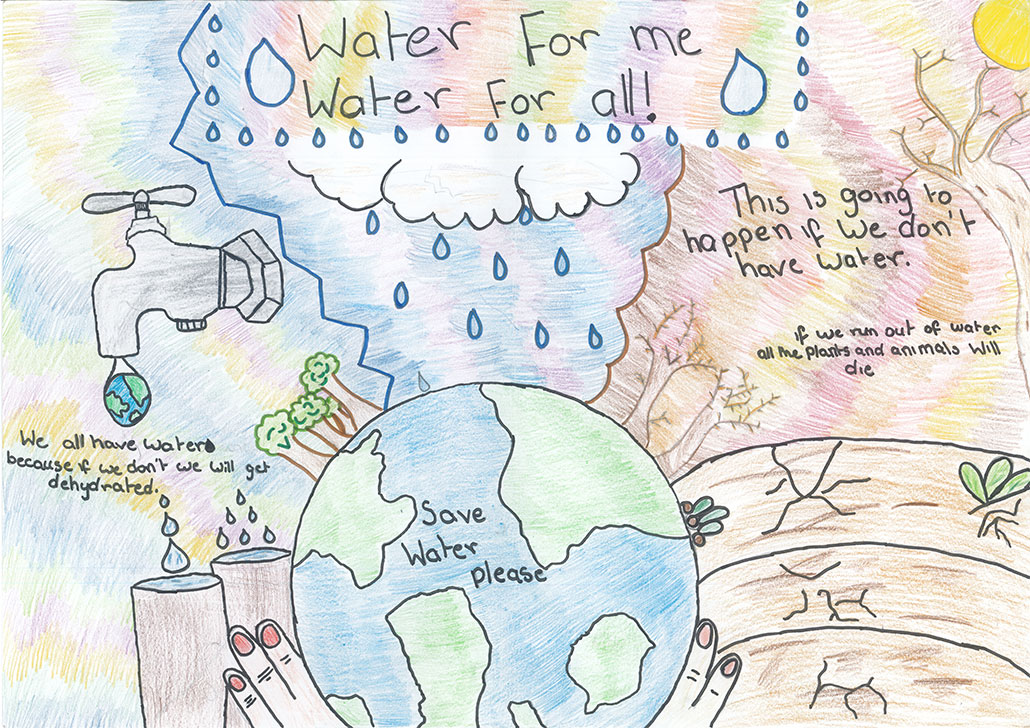 Water For me
Water For all!
This is going to
happen if we don't
have water.
if we run out of water
all the plants and animals will
die
We all have water
because if we don't we will get
dehydrated.
Save
Water
please